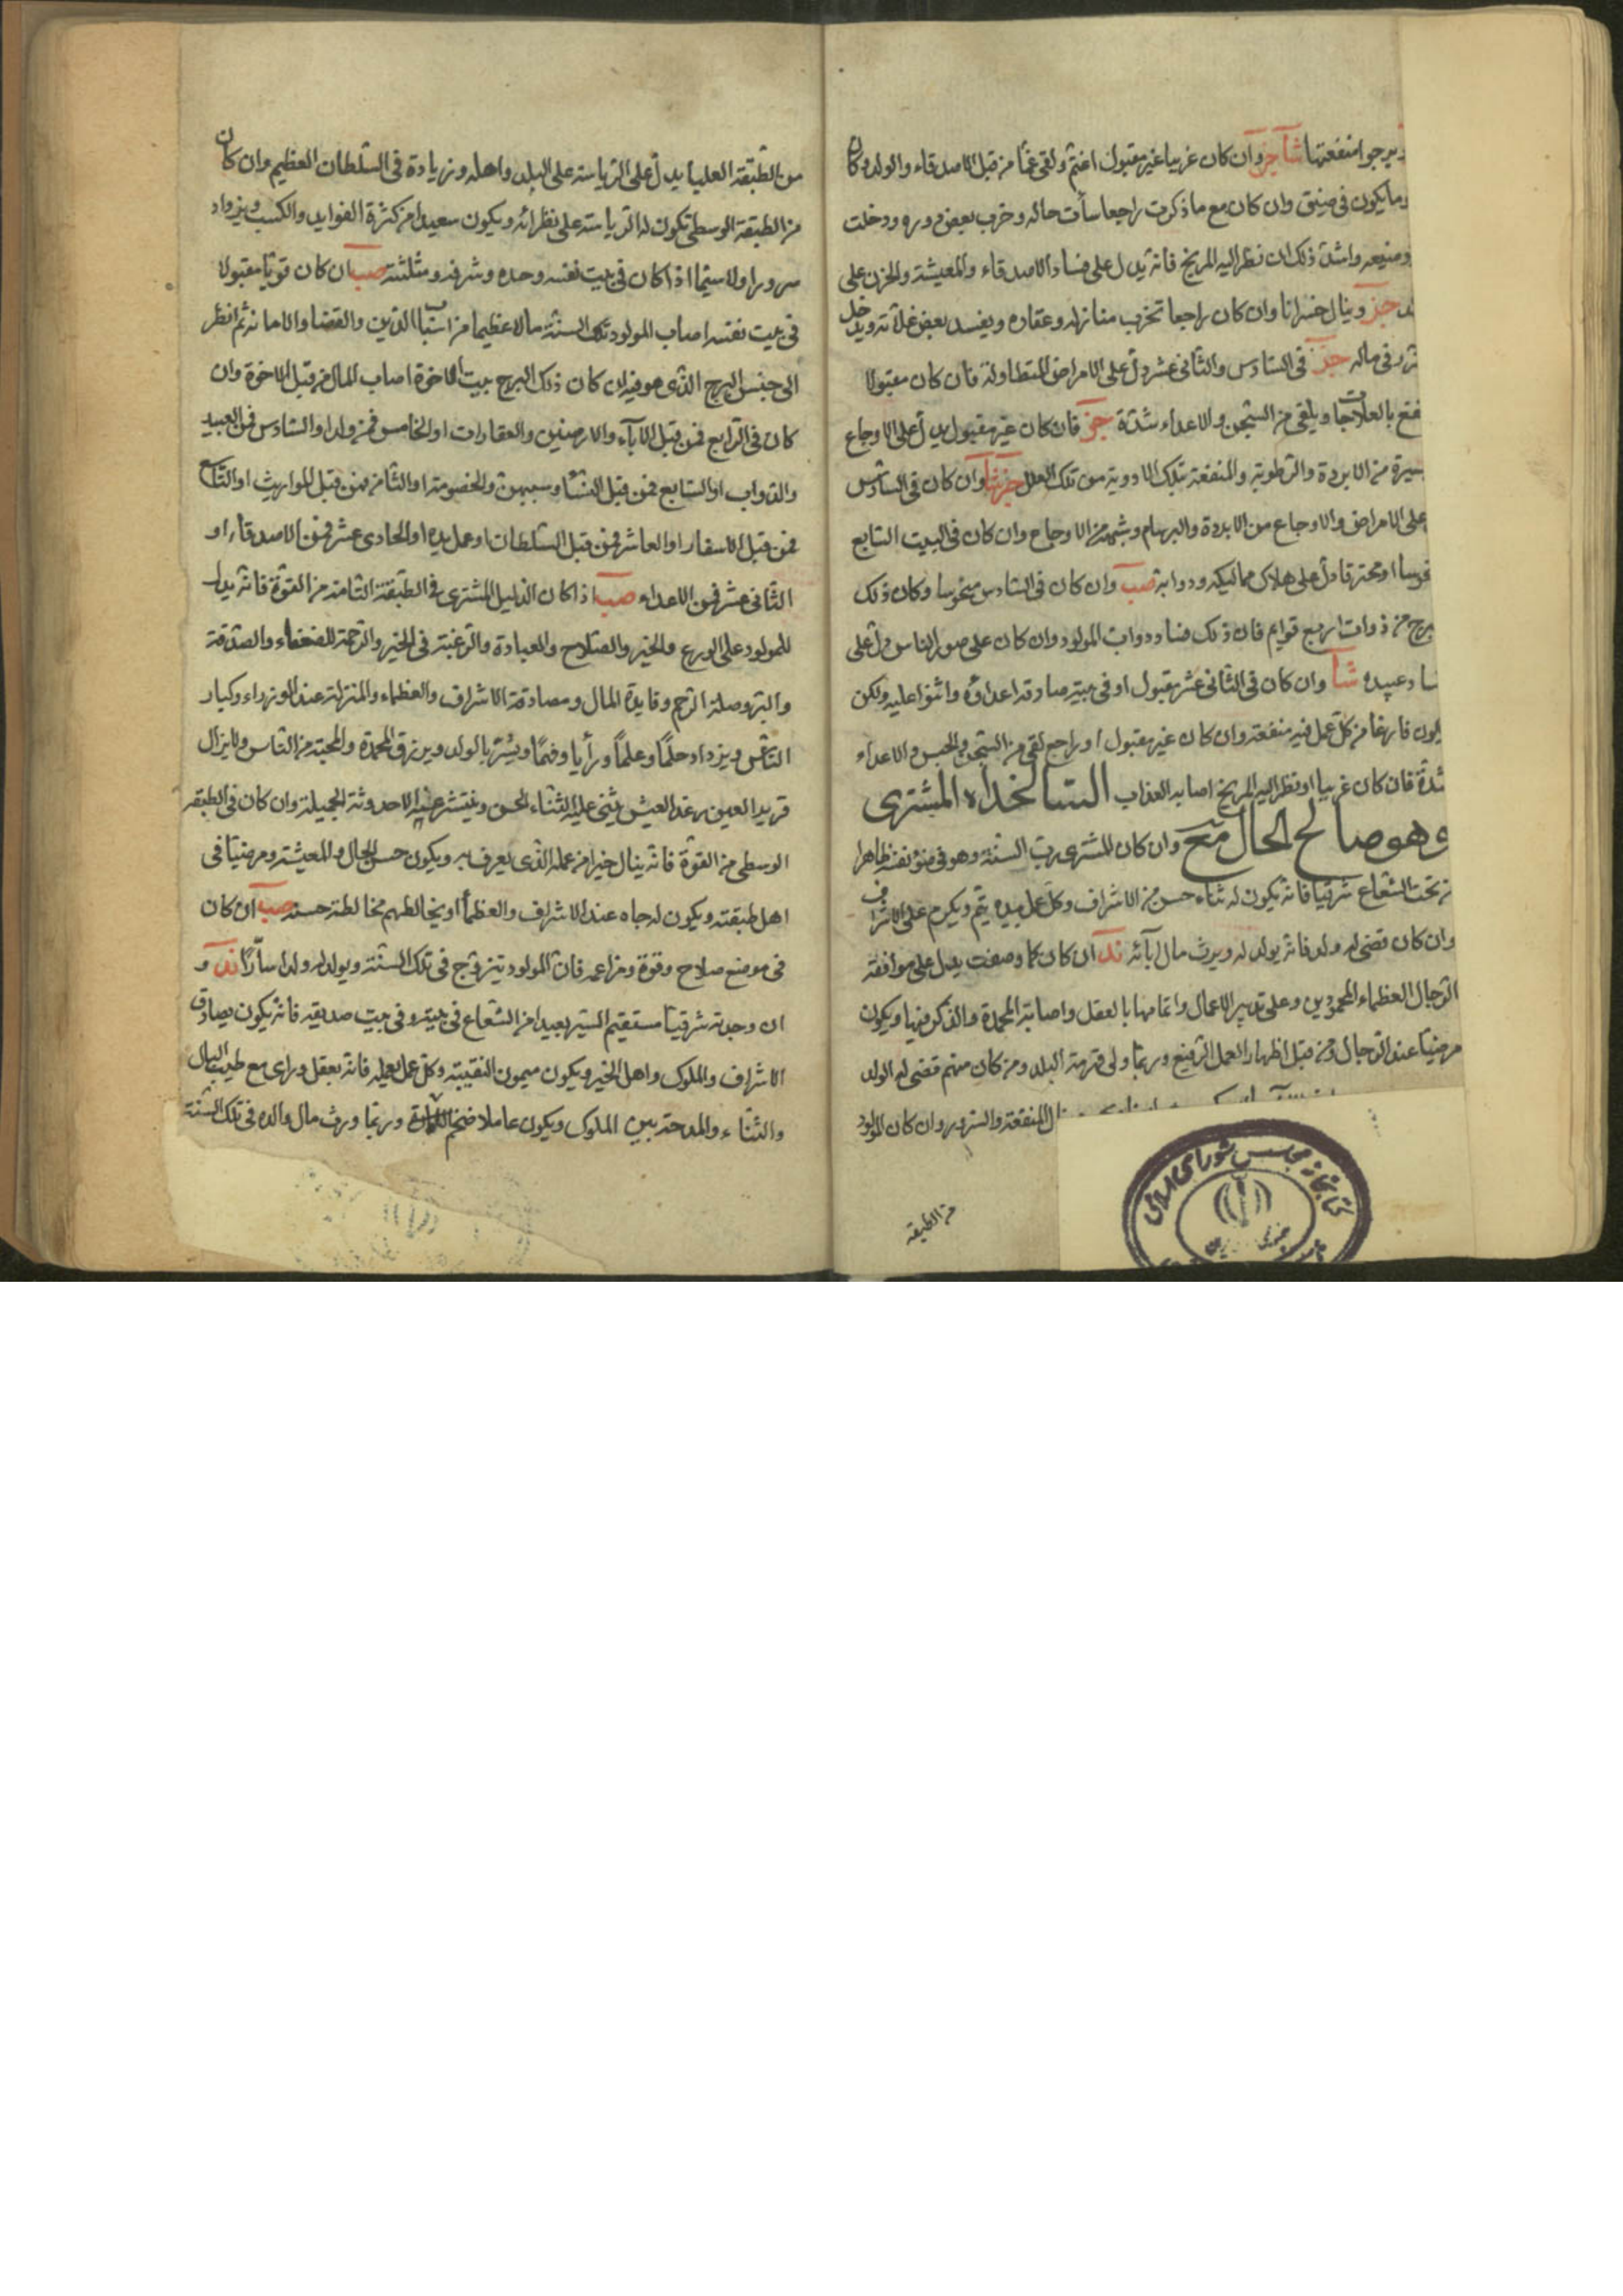 ويرجوا منفعتها شآ جز وان كان غريبا غير مقبول اغتم ولقى غمّا من قبل الاصدقاء والولد وكان
وما يكون فى ضيق وان كان مع ما ذكرت راجعا سأت حاله وخرب بعض دوره ودخلت
وضيعه واشدّ ذلك ان نظر اليه المريخ فانه يدل على فساد الاصدقاء والمعيشة والحزن على
جز وينال خسرانا وان كان راجعا تخرب منازله وعقاره ويفسد بعض غلاته ويدخل
فى ماله جز فى السّادس والثانى عشر دلّ على الامراض المتطاولة فان كان مقبولا
بالعلاجات ويلقى من السّجن والاعداء شدّة جز فان كان غير مقبول يدلّ على الاوجاع
من الابردة والرّطوبة والمنفعة بتلك الادوية من تلك العلل جز شآ وان كان فى السّادس
على الامراض والاوجاع من الابردة والبرسام وشبهه من الاوجاع وان كان فى البيت السّابع
او محترقا دلّ على هلاك مماليكه ودوابه صب وان كان فى السّادس منحوسا وكان ذلك
من ذوات اربع قوايم فان ذلك فساد دوات المولود وان كان على صور الناس دلّ على
عبيده شآ وان كان فى الثانى عشر مقبول او فى بيته صادقه اعداؤه واثنوا عليه ولكن
فارغا من كلّ عمل فيه منفعة وان كان غير مقبول او راجع لقى من السّجن والحبس والاعداء
شدّة فان كان غريبا او نظر اليه المريخ اصابه العذاب السالخداه المشترى
وهو صالح الحال مح وان كان المشترى ربّ السنة وهو فى ضوء نفسه ظاهرا
من تحت الشّعاع شرقيّا فانه يكون له ثناء حسن من الاشراف وكل عمل بيده يتم ويكرم على الاشراف
وان كان قضى له ولد فانه يولد له ويرث مال آبائه ند ان كان كما وصفت يدل على موافقة
الرّجال العظماء المحمودين وعلى تدبير الاعمال واتمامها بالعقل واصابته المحمدة والذكر فيها ويكون
مرضيّا عند الرّجال ومن قبل اظهار العمل الرّفيع وربّما ولى قرمة البلد ومن كان منهم قضى له الولد
المنفعة والسّرور وان كان المولود
من الطبقة
من الطّبقة العليا يدلّ على الرّياسة على البلد واهله وزيادة فى السّلطان العظيم وان كان
من الطبقة الوسطى تكون له الرّياسة على نظرائه ويكون سعيدا من كثرة الفوايد والكسب ويزداد
سرورا ولا سيّما اذا كان فى بيت نفسه وحده وشرفه ومثلثته صب ان كان قويّا مقبولا
فى بيت نفسه اصاب المولود تلك السنّة مالا عظيما من اسباب الدّين والقضا والامانة ثم انظر
الى جنس البرج الذّى هو فيه ان كان ذلك البرج بيت الاخوة اصاب المال من قبل الاخوة وان
كان فى الرّابع فمن قبل الآباء والارضين والعقارات او الخامس فمن ولد او السّادس فمن العبيد
والدّواب او السّابع فمن قبل النّساء وسببهنّ والخصومة او الثّامن فمن قبل المواريث او التّاسع
فمن قبل الاسفار او العاشر فمن قبل السّلطان او عمل يده او الحادى عشر فمن الاصدقاء او
الثّانى عشر فمن الاعداء صب اذا كان الدّليل المشترى فى الطّبقة الثامنة من القوّة فانه يدل
للمولود على الورع والخير والصّلاح والعبادة والرّغبة فى الخير والرّحمة للضعفاء والصّدقة
والبرّ وصلة الرّحم وفايدة المال ومصادقة الاشراف والعظماء والمنزلة عند الوزراء وكبار
النّاس ويزداد حلمًا وعلمًا ورأيا وفهمًا ويُسَرّ بالولد ويرزق المحمدة والمحبّة من النّاس ولا يزال
قرير العين رغد العيش يثنى عليه الثّناء الحسن وينتشر عنه الاحدوثة الجميلة وان كان فى الطبقة
الوسطى من القوّة فانه ينال خيرا من عمله الذّى يعرف به ويكون حسن الحال والمعيشة ومرضيّا فى
اهل طبقته ويكون له جاه عند الاشراف والعظمآ او يخالطهم مخالطة حسنة صب ان كان
فى موضع صلاح وقوة ومزاعمه فانّ المولود يتزوّج فى تلك السّنّة ويولد له ولدا سآرّا ند و
ان وجدته شرقيّا مستقيم السّير بعيدا من الشعاع فى بيته وفى بيت صديقه فانه يكون يصادق
الاشراف والملوك واهل الخير ويكون ميمون النقيبة وكل عمل يعمله فانه بعقل وراى مع طيب البال
والثّناء والمدحة بين الملوك ويكون عاملا ضخم وربّما ورث مال والده فى تلك السّنّة